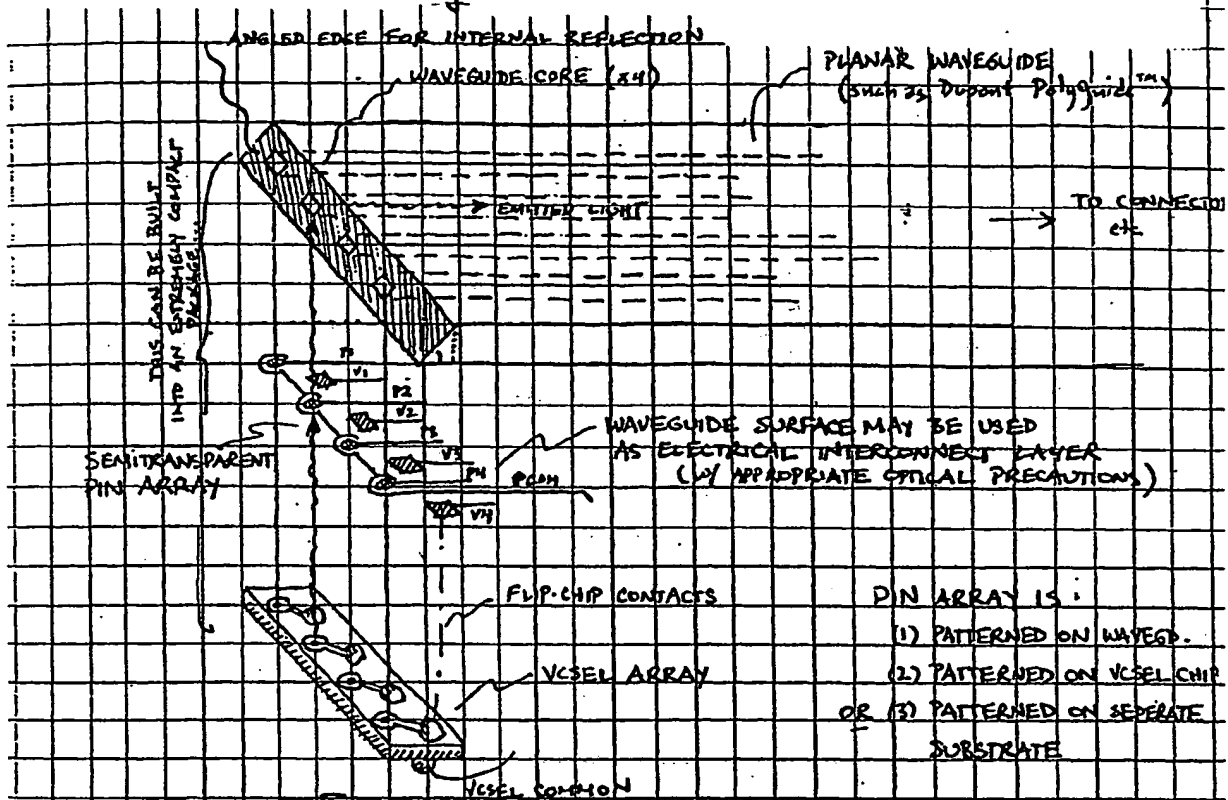 ANGLED EDGE FOR INTERNAL REFLECTION
WAVEGUIDE CORE (x4)
PLANAR WAVEGUIDE
(such as Dupont Polyguide™)
THIS CAN BE BUILT
INTO AN EXTREMELY COMPACT
PACKAGE
EMITTED LIGHT
TO CONNECTOR
etc
P1
V1
P2
V2
P3
V3
P4
PCOM
V4
WAVEGUIDE SURFACE MAY BE USED
AS ELECTRICAL INTERCONNECT LAYER
(W/ APPROPRIATE OPTICAL PRECAUTIONS)
SEMITRANSPARENT
PIN ARRAY
FLIP-CHIP CONTACTS
VCSEL ARRAY
VCSEL COMMON
PIN ARRAY IS:
(1) PATTERNED ON WAVEGD.
(2) PATTERNED ON VCSEL CHIP
OR (3) PATTERNED ON SEPERATE
SUBSTRATE